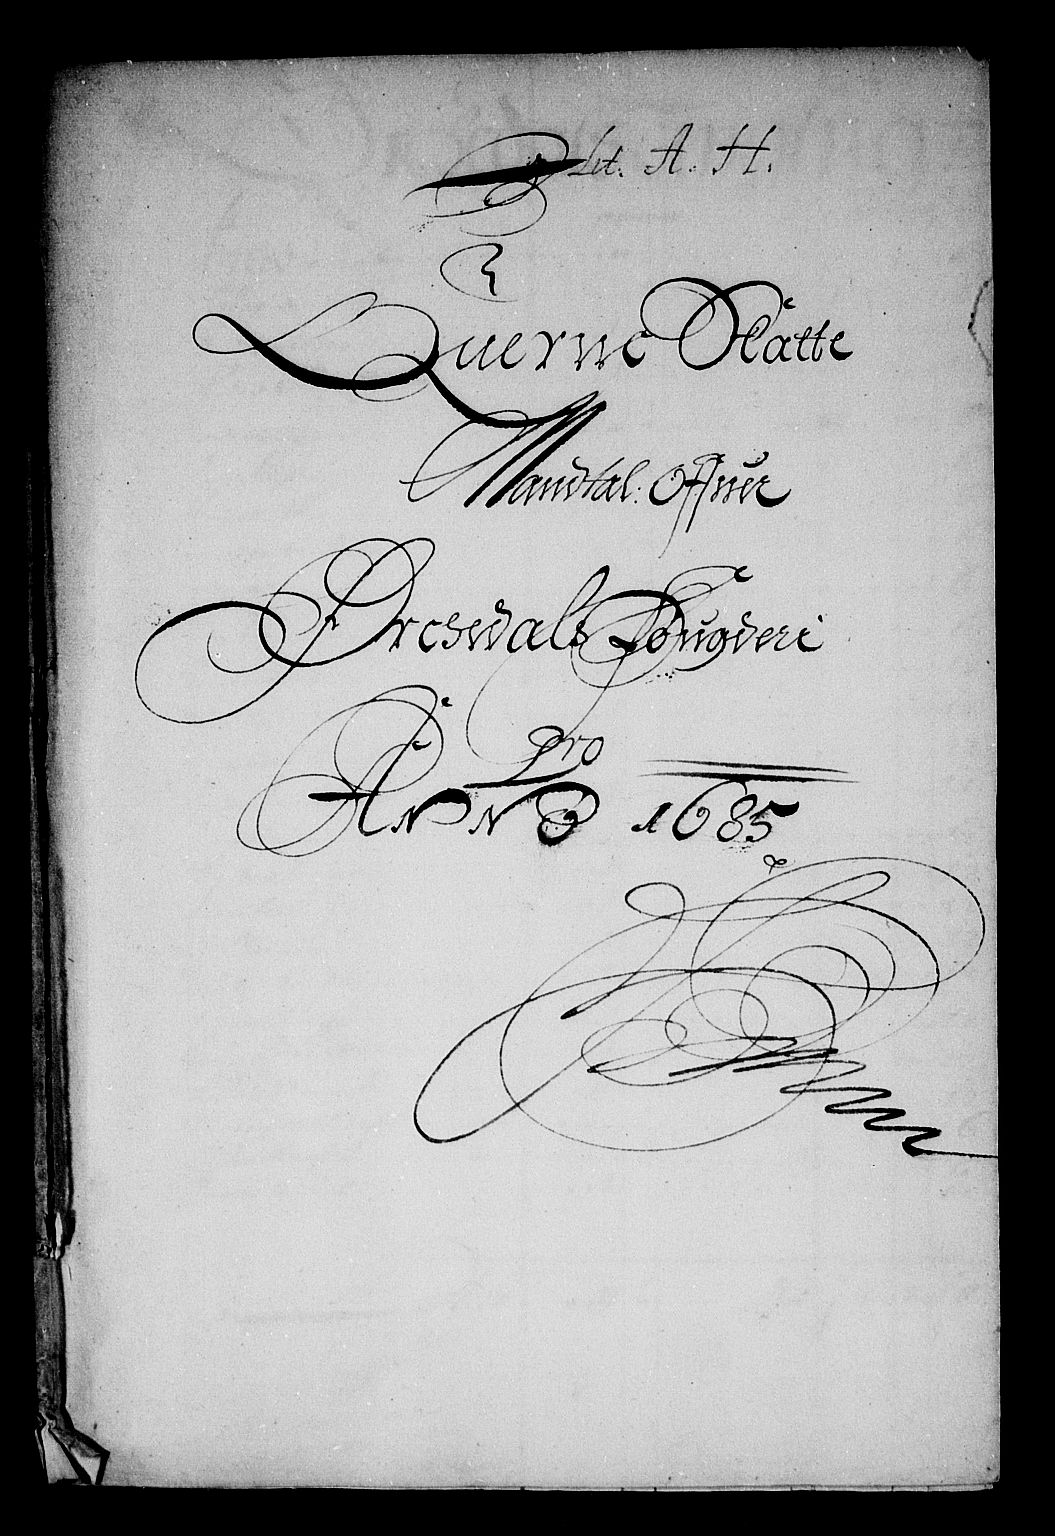 Lit. A. H.
Querne Skatte
Mandtal: Ofuer
Orchedals Fougderi
Pro
ANNO 1685